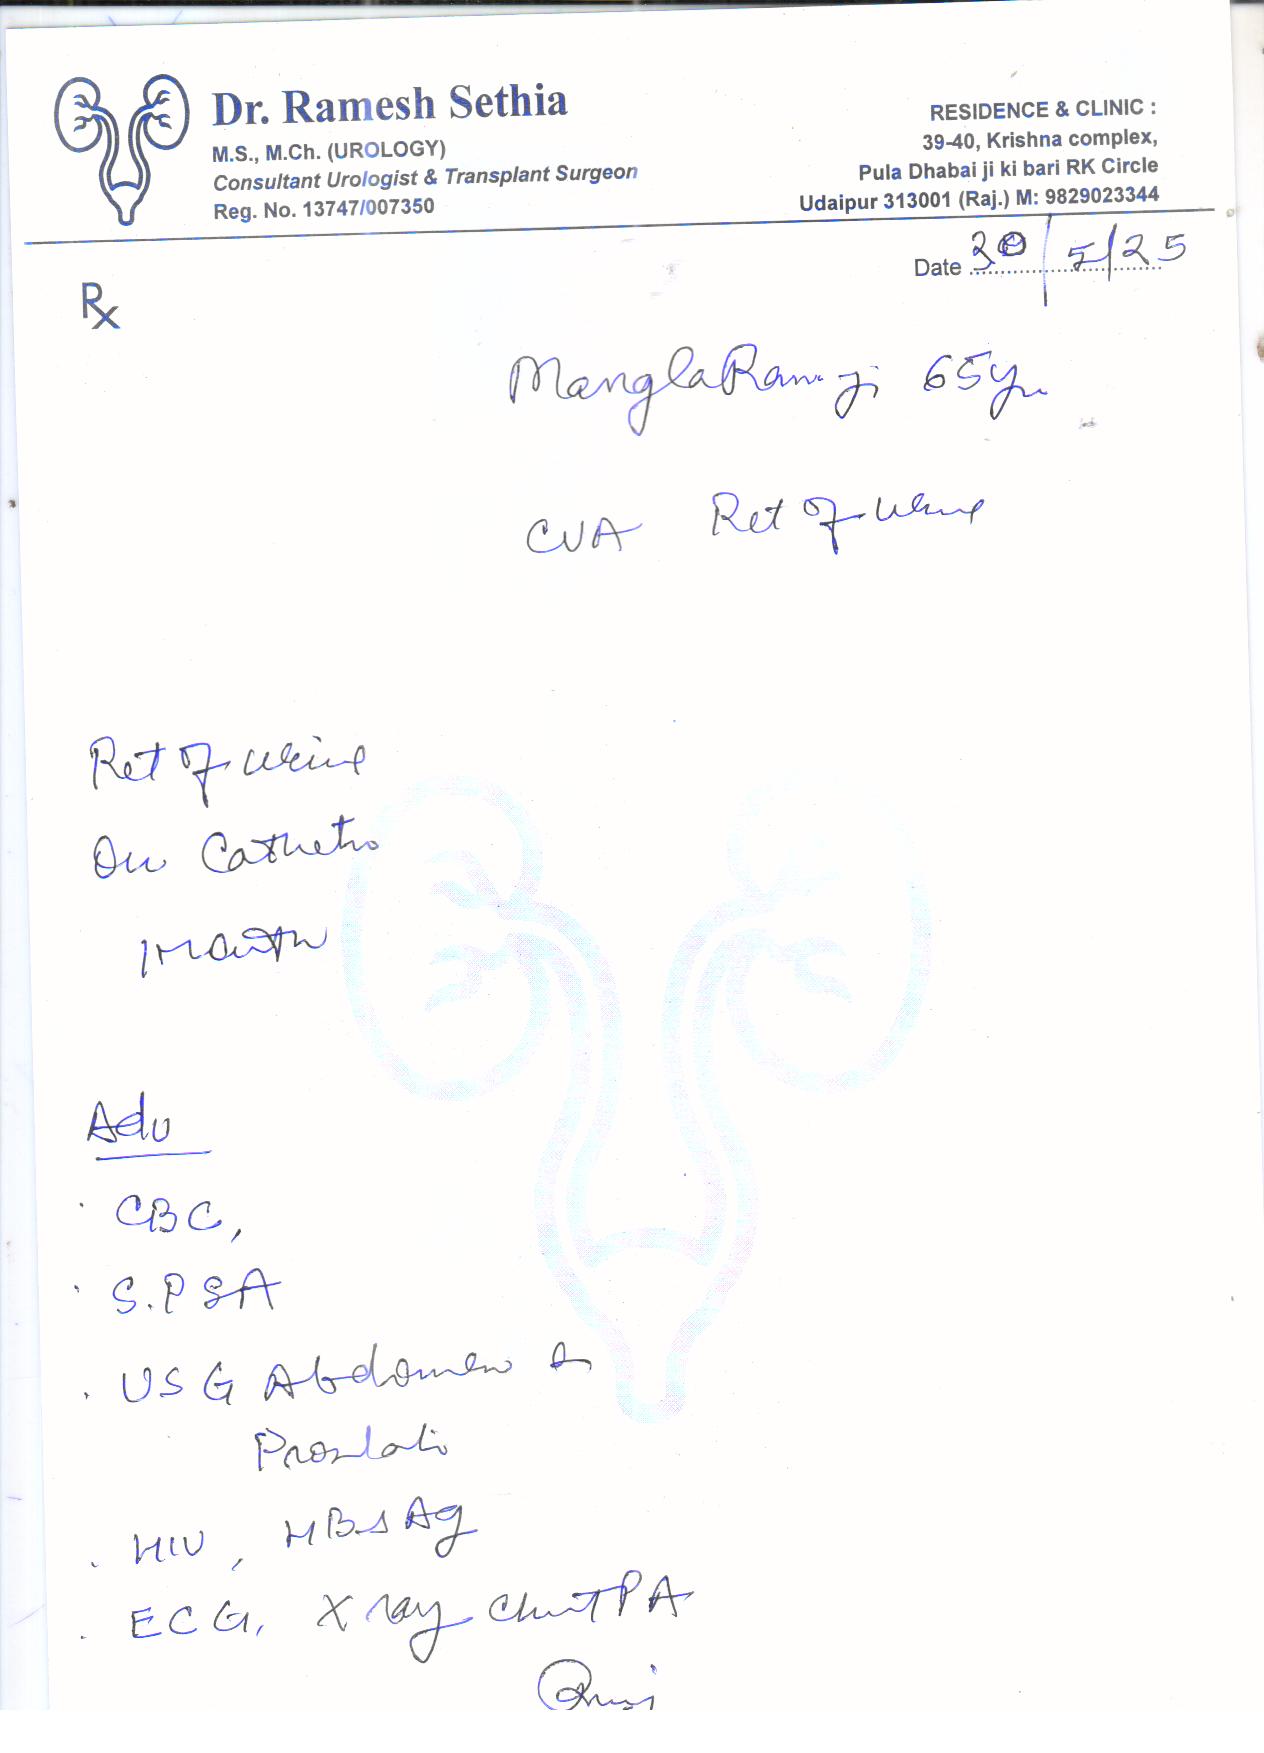 Dr. Ramesh Sethia
M.S., M.Ch. (UROLOGY)
Consultant Urologist & Transplant Surgeon
Reg. No. 13747/007350
RESIDENCE & CLINIC :
39-40, Krishna complex,
Pula Dhabai ji ki bari RK Circle
Udaipur 313001 (Raj.) M: 9829023344
Date 20/5/25
Rx
ManglaRam ji 65yr
CVA Ret of Urine
Ret of Urine
On Catheter
1 Month
Adv
. CBC,
. S.PSA
. USG Abdomen &
Prostate
. HIV, HBsAg
. ECG, X ray Chest PA